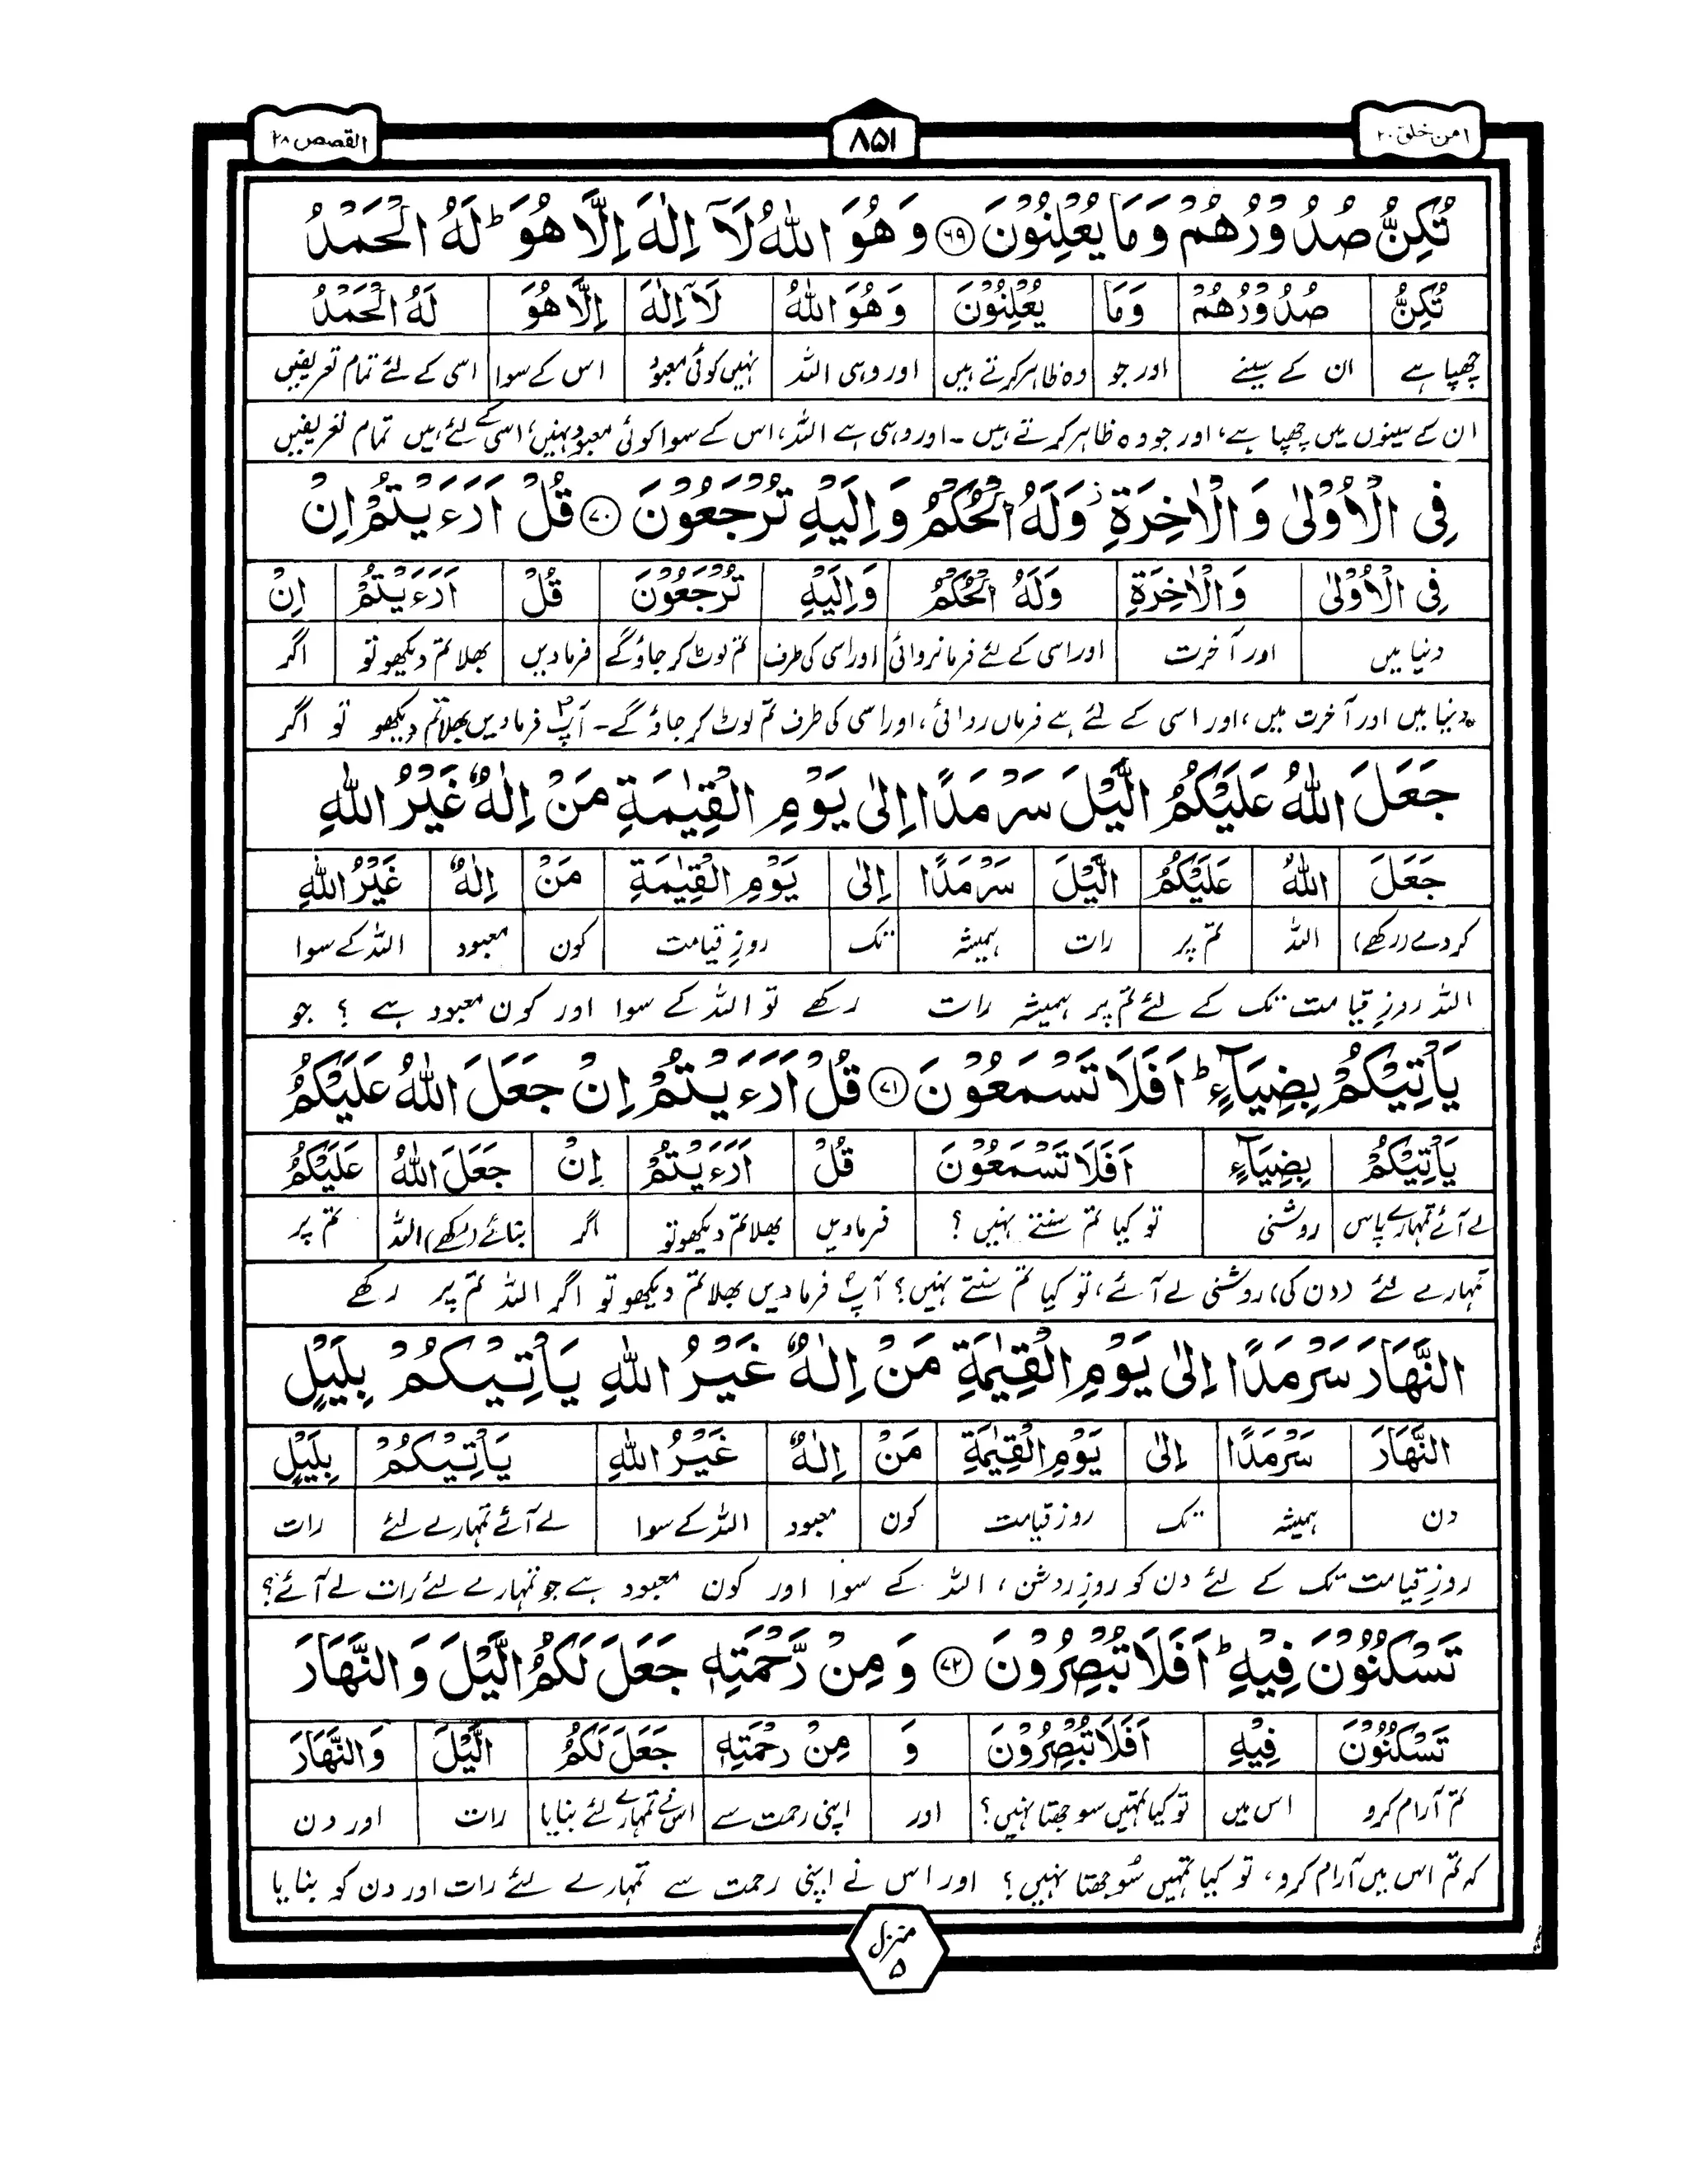 امن خلق ۲۰
۸۵۱
القصص ۲۸
تُكِنُّ صُدُوْرُهُمْ وَمَا يُعْلِنُوْنَ ﴿۶۹﴾ وَهُوَ اللّٰهُ لَاۤ اِلٰهَ اِلَّا هُوَ ؕ لَهُ الْحَمْدُ
تُكِنُّ صُدُوْرُهُمْ وَمَا يُعْلِنُوْنَ وَهُوَ اللّٰهُ لَاۤ اِلٰهَ اِلَّا هُوَ لَهُ الْحَمْدُ
چھپا ہے ان کے سینے اور جو وہ ظاہر کرتے ہیں اور وہی اللہ نہیں کوئی معبود اس کے سوا اسی کے لئے تمام تعریفیں
ان کے سینوں میں چھپا ہے، اور جو وہ ظاہر کرتے ہیں۔ اور وہی ہے اللہ، اس کے سوا کوئی معبود نہیں، اسی کے لئے ہیں تمام تعریفیں
فِى الْاُوْلٰى وَالْاٰخِرَةِ ؗ وَلَهُ الْحُكْمُ وَاِلَيْهِ تُرْجَعُوْنَ ﴿۷۰﴾ قُلْ اَرَءَيْتُمْ اِنْ
فِى الْاُوْلٰى وَالْاٰخِرَةِ وَلَهُ الْحُكْمُ وَاِلَيْهِ تُرْجَعُوْنَ قُلْ اَرَءَيْتُمْ اِنْ
دنیا میں اور آخرت اور اسی کے لئے فرمانروائی اور اسی کی طرف تم لوٹ کر جاؤ گے فرما دیں بھلا تم دیکھو تو اگر
دنیا میں اور آخرت میں، اور اسی کے لئے ہے فرماں روائی، اور اسی کی طرف تم لوٹ کر جاؤ گے۔ آپؐ فرما دیں بھلا تم دیکھو تو اگر
جَعَلَ اللّٰهُ عَلَيْكُمُ الَّيْلَ سَرْمَدًا اِلٰى يَوْمِ الْقِيٰمَةِ مَنْ اِلٰهٌ غَيْرُ اللّٰهِ
جَعَلَ اللّٰهُ عَلَيْكُمُ الَّيْلَ سَرْمَدًا اِلٰى يَوْمِ الْقِيٰمَةِ مَنْ اِلٰهٌ غَيْرُ اللّٰهِ
کر دے (رکھے) اللہ تم پر رات ہمیشہ تک روزِ قیامت کون معبود اللہ کے سوا
اللہ روزِ قیامت تک کے لئے تم پر ہمیشہ رات رکھے تو اللہ کے سوا اور کون معبود ہے ؟ جو
يَاْتِيْكُمْ بِضِيَآءٍ ؕ اَفَلَا تَسْمَعُوْنَ ﴿۷۱﴾ قُلْ اَرَءَيْتُمْ اِنْ جَعَلَ اللّٰهُ عَلَيْكُمُ
يَاْتِيْكُمْ بِضِيَآءٍ اَفَلَا تَسْمَعُوْنَ قُلْ اَرَءَيْتُمْ اِنْ جَعَلَ اللّٰهُ عَلَيْكُمُ
لے آئے تمہارے پاس روشنی تو کیا تم سنتے نہیں ؟ فرما دیں بھلا تم دیکھو تو اگر بنائے (رکھے) اللہ تم پر
تمہارے لئے (دن کی) روشنی لے آئے، تو کیا تم سنتے نہیں؟ آپؐ فرما دیں بھلا تم دیکھو تو اگر اللہ تم پر رکھے
النَّهَارَ سَرْمَدًا اِلٰى يَوْمِ الْقِيٰمَةِ مَنْ اِلٰهٌ غَيْرُ اللّٰهِ يَاْتِيْكُمْ بِلَيْلٍ
النَّهَارَ سَرْمَدًا اِلٰى يَوْمِ الْقِيٰمَةِ مَنْ اِلٰهٌ غَيْرُ اللّٰهِ يَاْتِيْكُمْ بِلَيْلٍ
دن ہمیشہ تک روز قیامت کون معبود اللہ کے سوا لے آئے تمہارے لئے رات
روزِ قیامت تک کے لئے دن کو روزِ روشن، اللہ کے سوا اور کون معبود ہے جو تمہارے لئے رات لے آئے؟
تَسْكُنُوْنَ فِيْهِ ؕ اَفَلَا تُبْصِرُوْنَ ﴿۷۲﴾ وَمِنْ رَّحْمَتِهٖ جَعَلَ لَكُمُ الَّيْلَ وَالنَّهَارَ
تَسْكُنُوْنَ فِيْهِ اَفَلَا تُبْصِرُوْنَ وَ مِنْ رَحْمَتِهٖ جَعَلَ لَكُمُ الَّيْلَ وَالنَّهَارَ
تم آرام کرو اس میں تو کیا تمہیں سوجھتا نہیں؟ اور اپنی رحمت سے اس نے تمہارے لئے بنایا رات اور دن
کہ تم اس میں آرام کرو، تو کیا تمہیں سُوجھتا نہیں؟ اور اس نے اپنی رحمت سے تمہارے لئے رات اور دن کو بنایا
منزل
۵